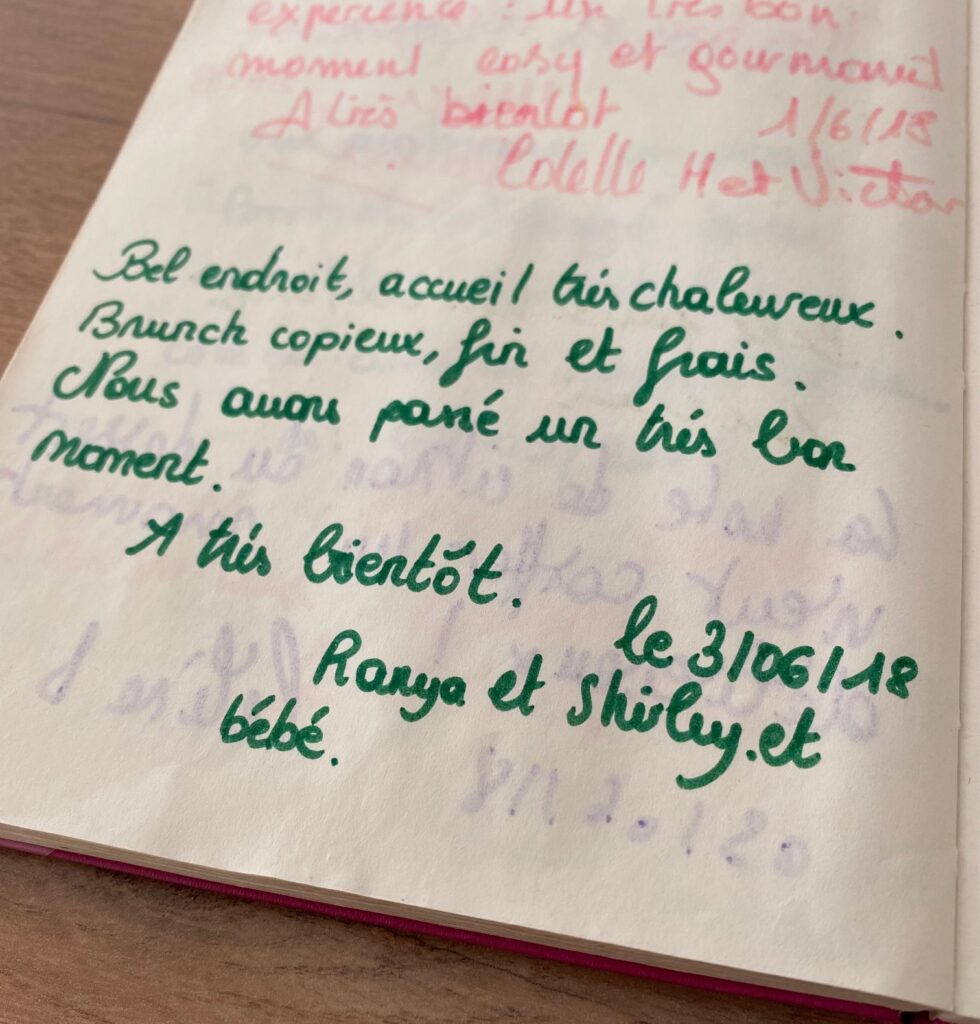 experience : un très bon
moment cosy et gourmand
A très bientot 1/6/18
H et Victor
Bel endroit, accueil très chaleureux.
Brunch copieux, fin et frais.
Nous avons passé un très bon
moment.
A très bientôt.
le 3/06/18
Ranya et Shirley.et
bébé.